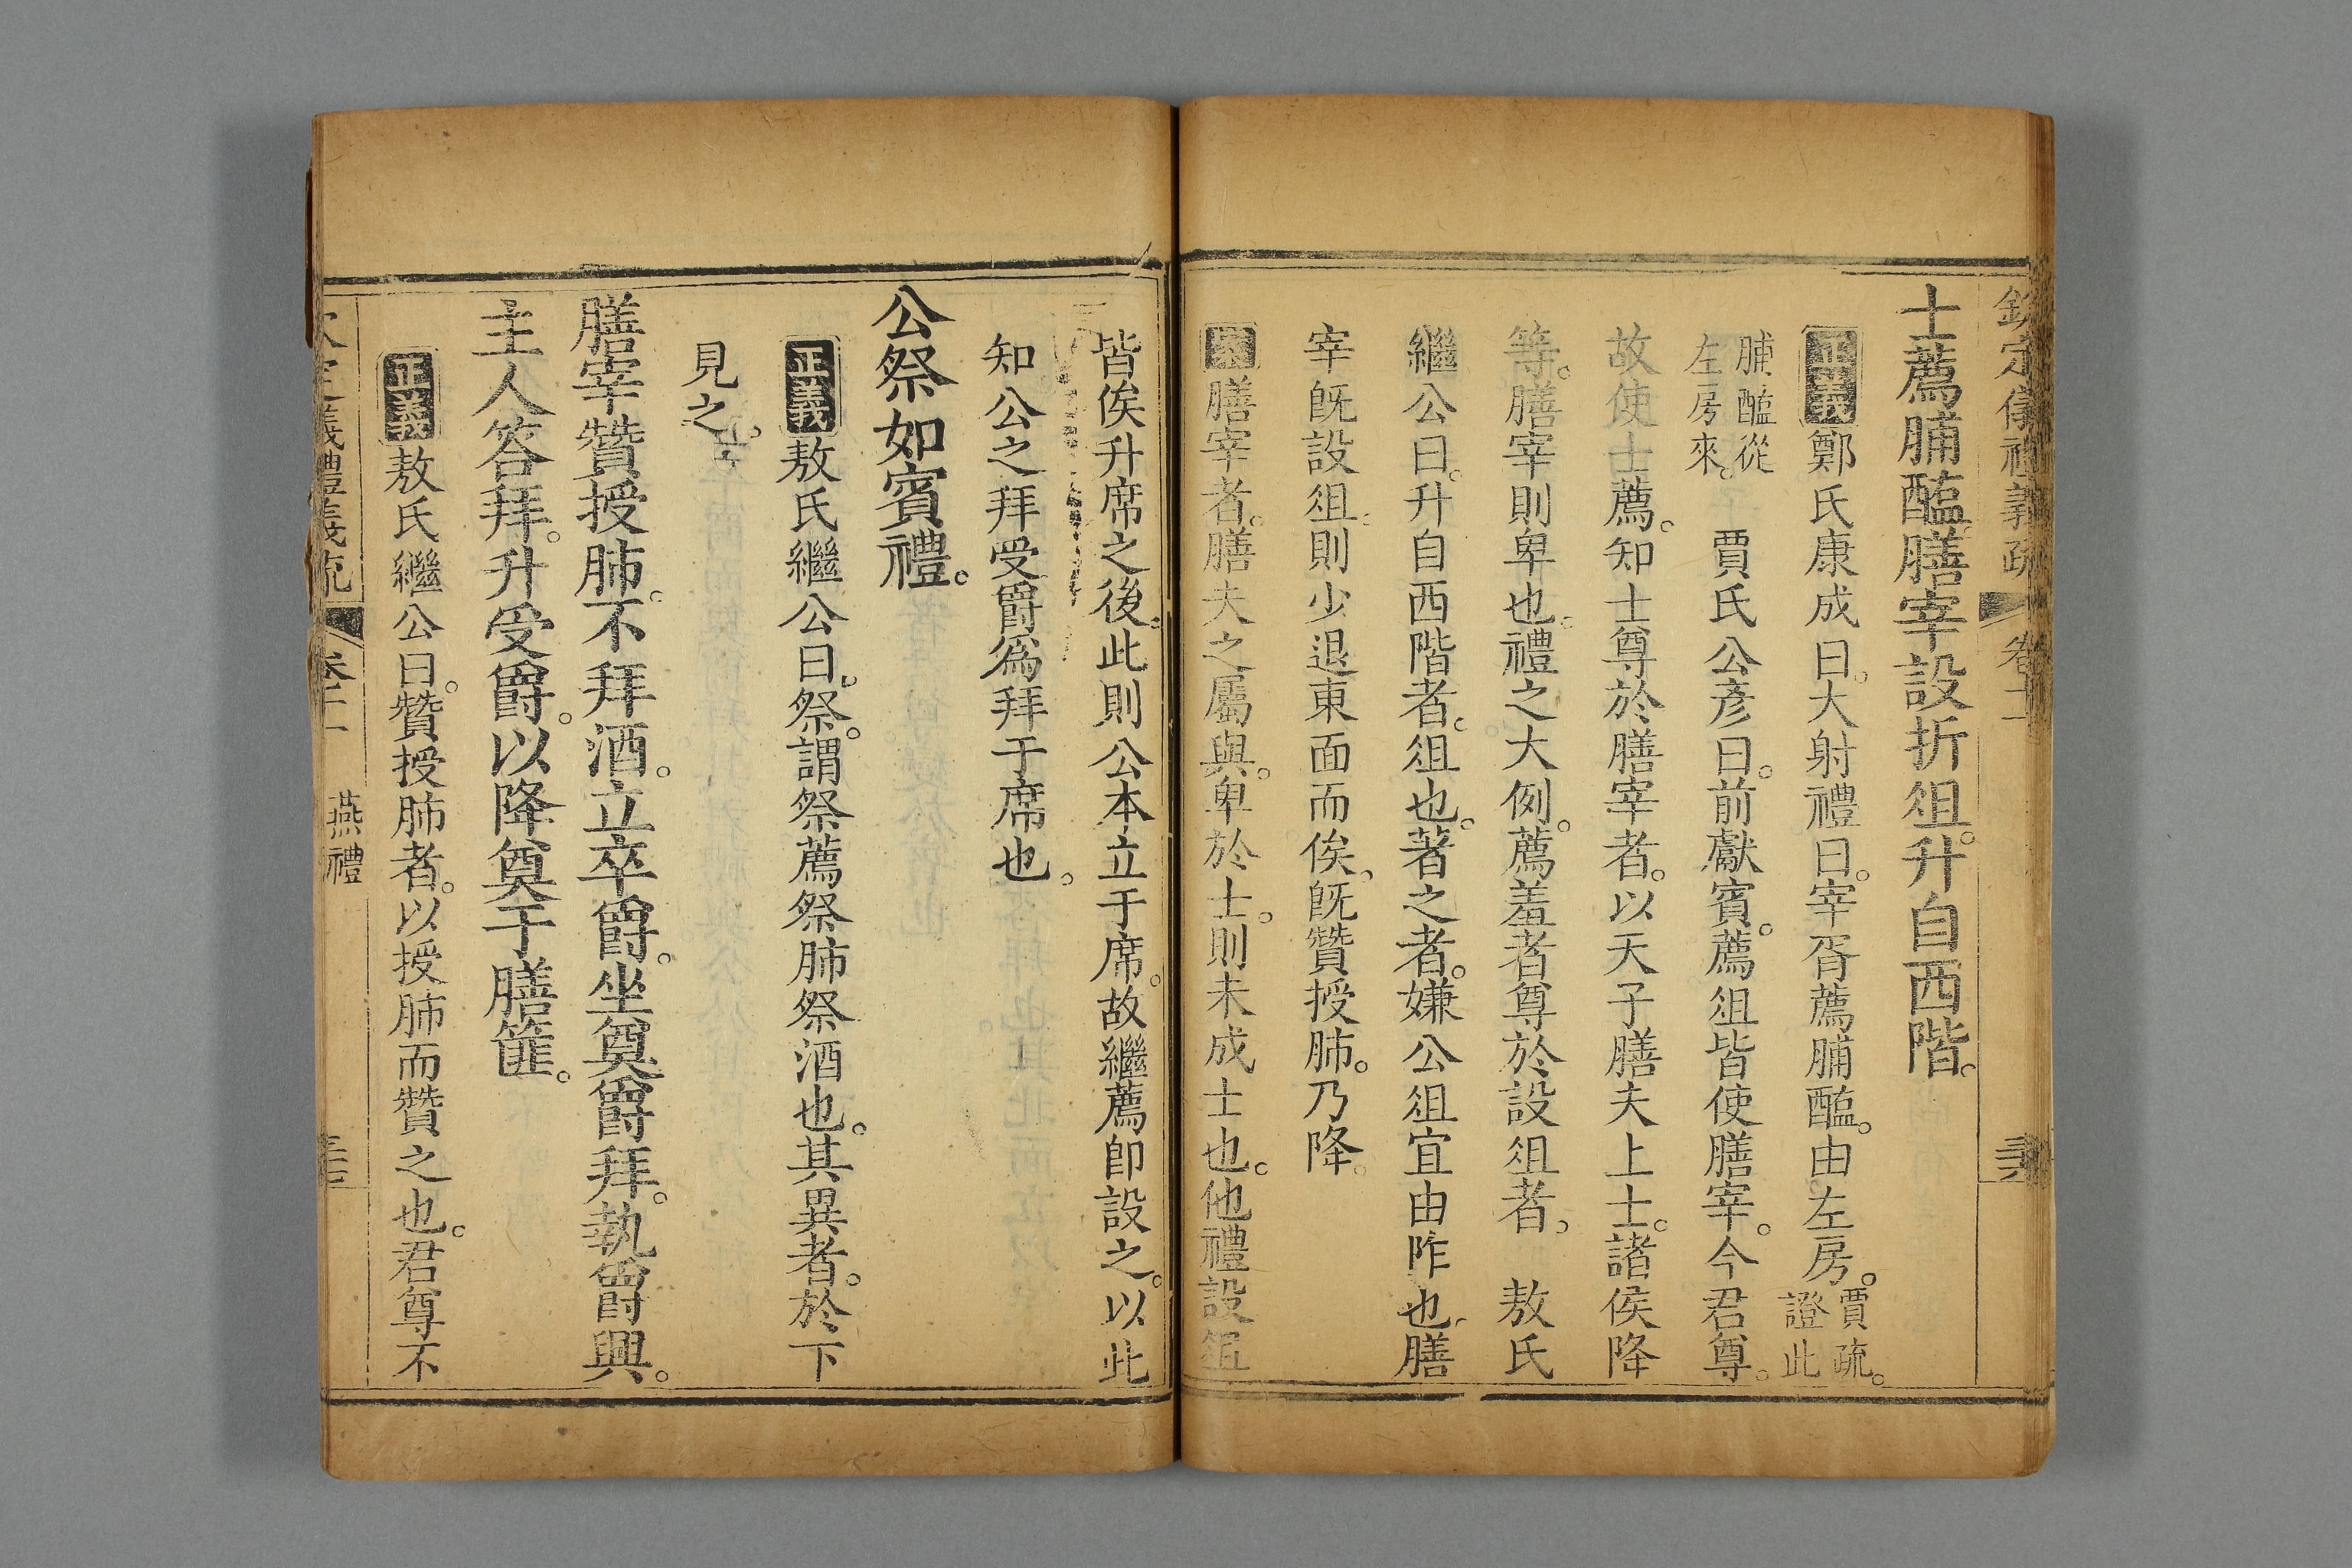 欽定儀禮義疏 卷十一
士薦脯醢膳宰設折俎。升自西階。
正義鄭氏康成曰。大射禮曰。宰胥薦脯醢。由左房。賈疏。證此
脯醢從左房來。 賈氏公彥曰。前獻賓。薦俎皆使膳宰。今君尊。
故使士薦。知士尊於膳宰者。以天子膳夫上士。諸侯降
等。膳宰則卑也。禮之大例。薦羞者尊於設俎者。 敖氏
繼公曰。升自西階者。俎也。著之者。嫌公俎宜由阼也。膳
宰旣設俎。則少退東面而俟。旣贊授肺。乃降。
案膳宰者。膳夫之屬與。卑於士。則未成士也。他禮設俎
皆俟升席之後。此則公本立于席。故繼薦卽設之。以此
知公之拜受爵爲拜于席也。
公祭如賓禮。
正義敖氏繼公曰。祭。謂祭薦祭肺祭酒也。其異者。於下
見之。
膳宰贊授肺。不拜酒。立卒爵。坐奠爵拜。執爵興。
主人答拜。升受爵。以降奠于膳篚。
正義敖氏繼公曰。贊授肺者。以授肺而贊之也。君尊不
欽定儀禮義疏 卷十一 燕禮